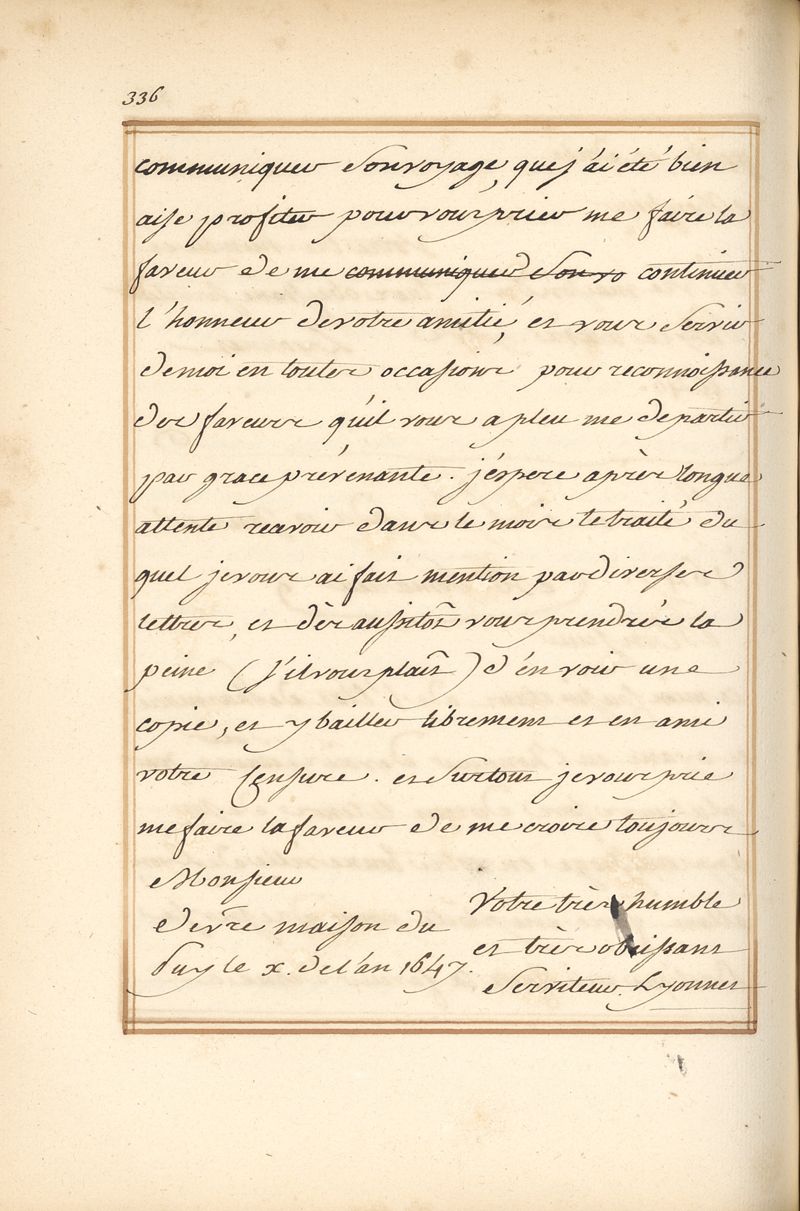 336
communiquer son voyage, que j'ai été bien
aise profiter pour vous prier me faire la
faveur de me communiquer son vo continuer
l'honneur de votre amitié, et vous servir
de moi en toutes occasions pour reconnoissance
des faveurs qu'il vous a pleu me departir
par grace prévenante. j'éspere après longue
attente reavoir dans le mois le traité du
quel je vous ai fait mention par diverses
lettres, et dès aussitôt vous prendrés la
peine (s'il vous plaît) d'en voir une
copie, et y bailler librement et en ami
votre censure. et surtout je vous prie
me faire la faveur de me croire toujours
Monsieur
de v̄re maison du
Puy le x. de l'an 1647.
Votre très humble
et très obeissant
Serviteur. Lyonnet